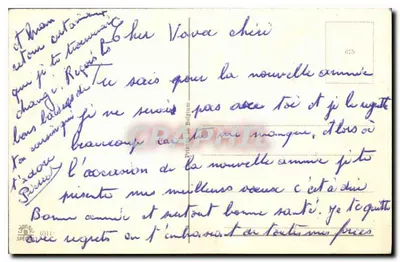 Cher Vava chéri
Tu sais pour la nouvelle année
je ne serais pas avec toi et je le regrette
beaucoup car tu me manque, Alors à
l'occasion de la nouvelle année je te
présente mes meilleurs voeux c'est à dire
Bonne année et surtout bonne santé. Je te quitte
avec regrets en t'embrassant de toutes mes forces
et
retour
que je te trouverai
changé. Reçois
bons baisers de
ta
t'adore